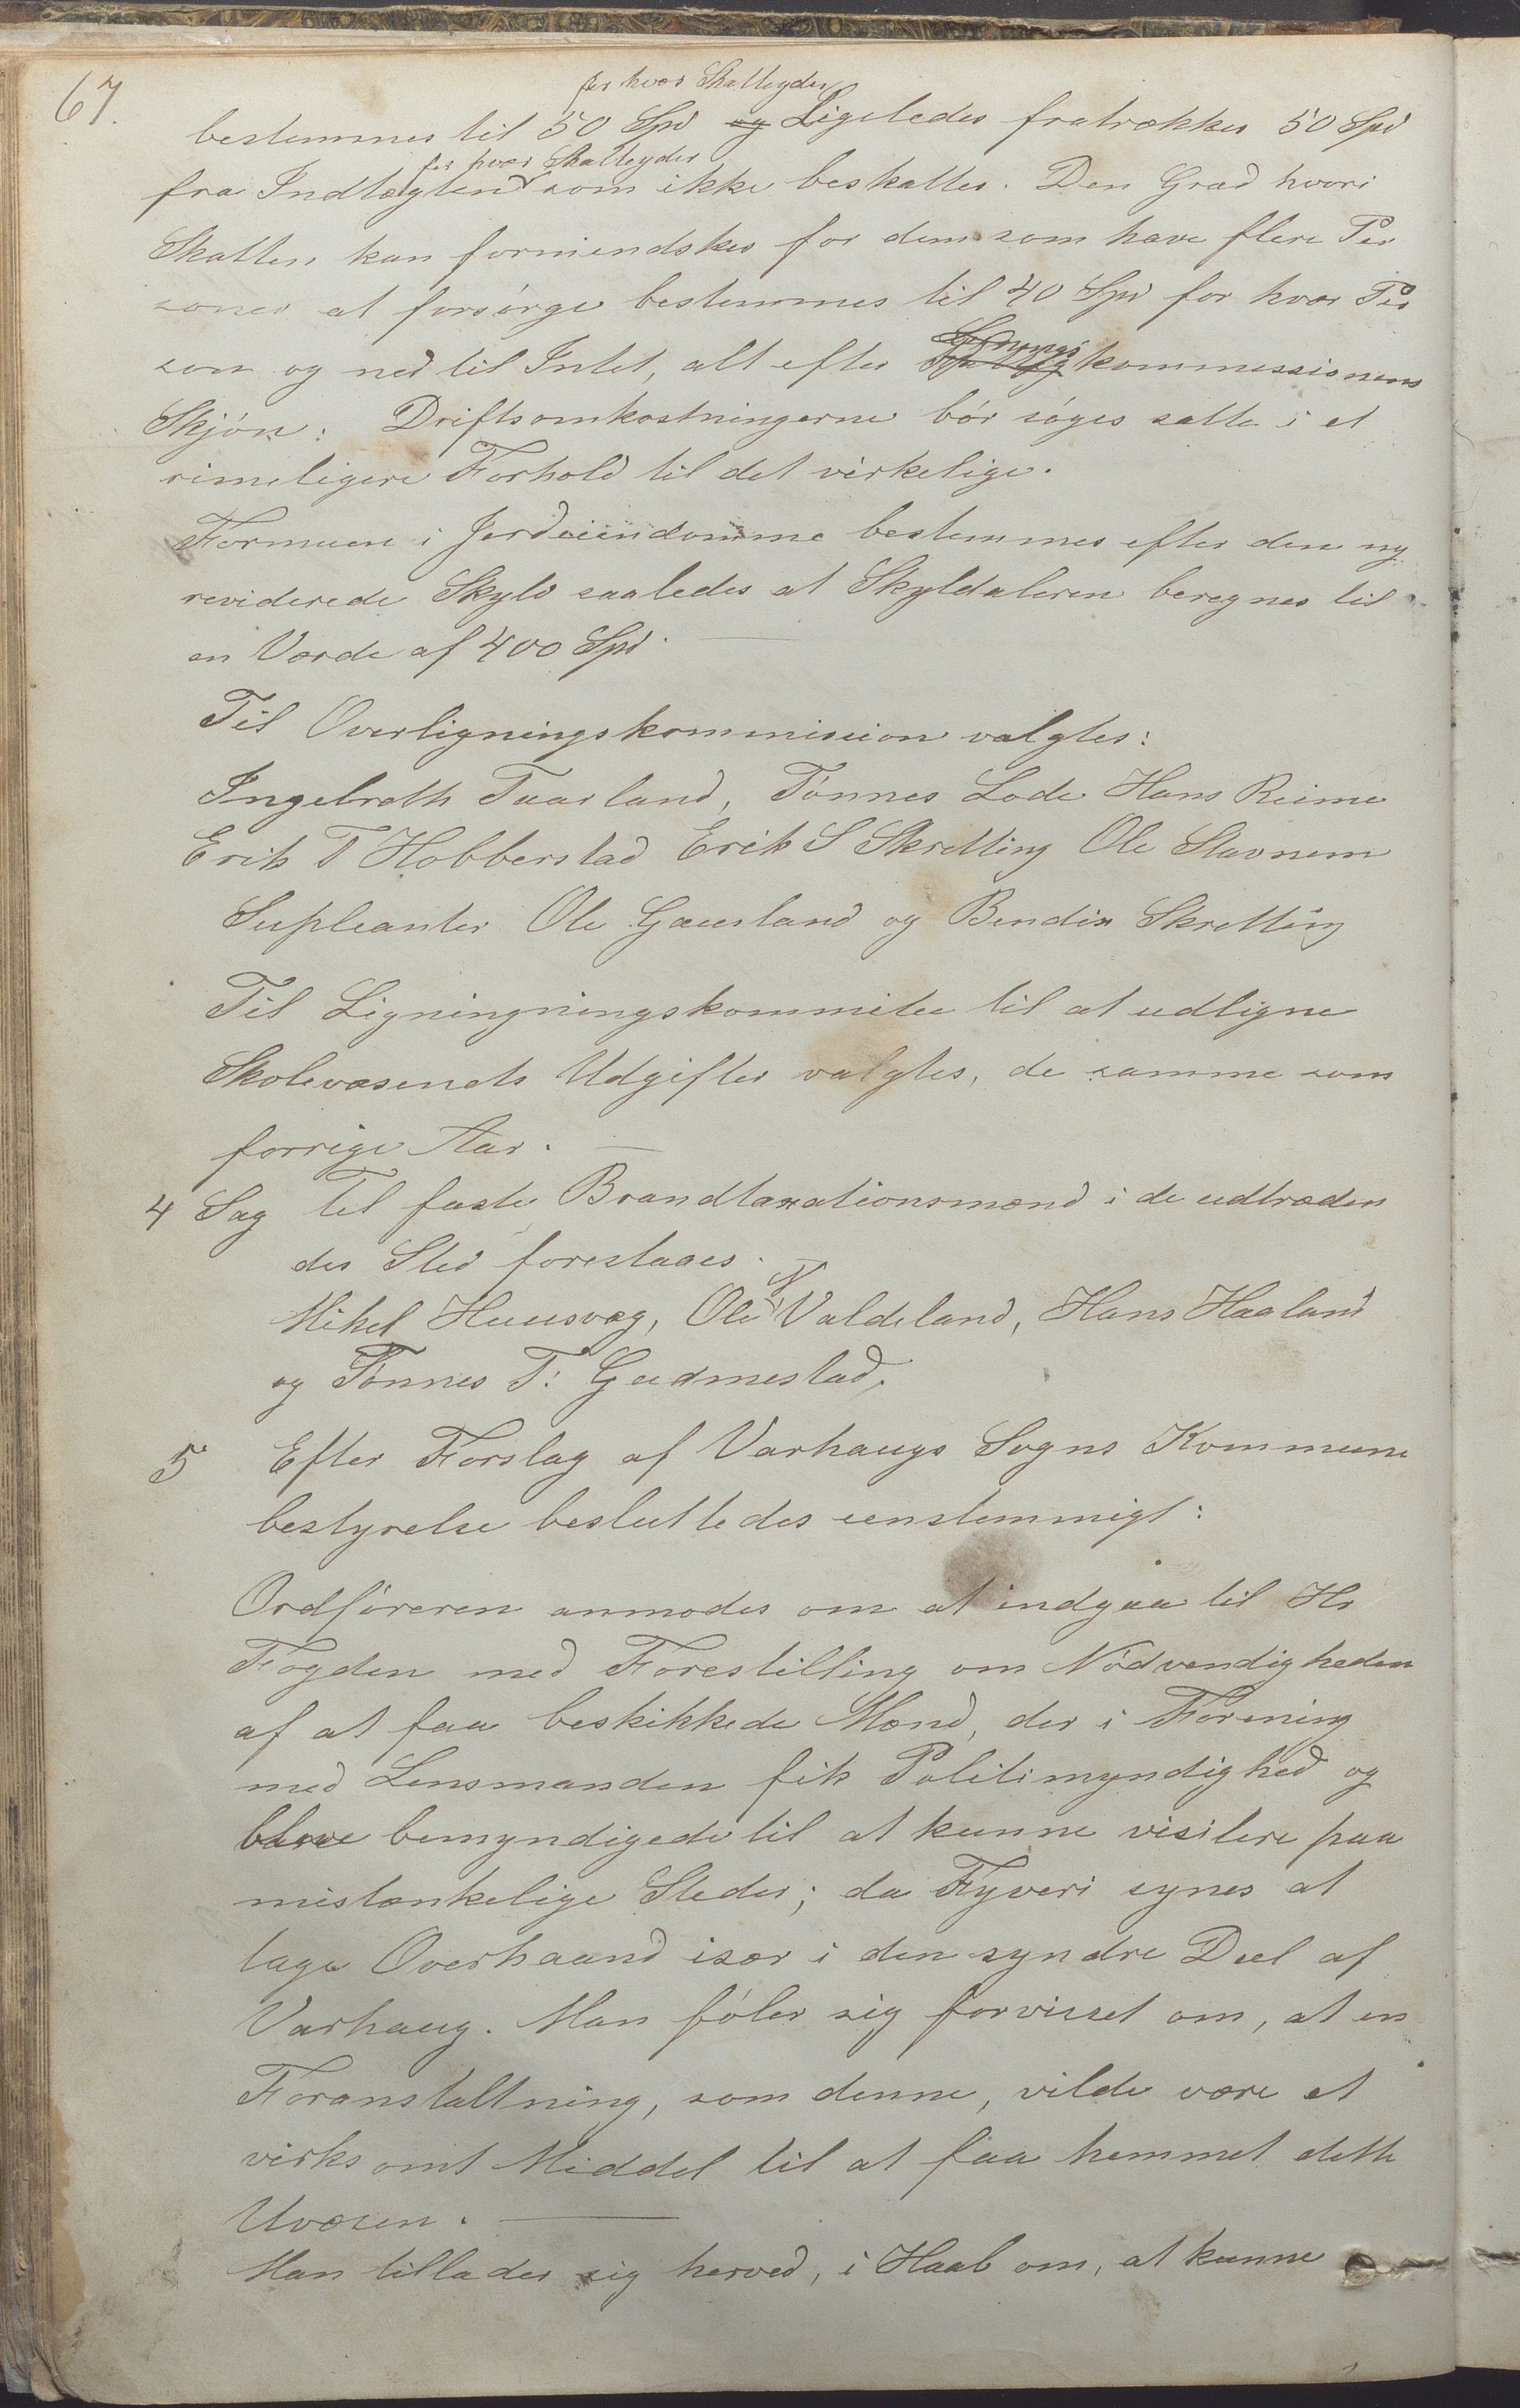 67.
for hver Skatteyder
bestemmes til 50 Spd og Ligeledes fratrækkes 50 Spd
for hver Skatteyder
fra Indtægten som ikke beskattes. Den Grad hvori
Skatten kan formindskes for dem som have flere Per
soner at forsørge bestemmes til 40 Spd for hver Per
son og ned til Intet, alt efter kommissionens
Skjøn. Driftsomkostningerne bør søges satte i et
rimeligere Forhold til det virkelige.
Formuen i Jordeiendomme bestemmes efter den ny
reviderede Skyld saaledes at Skyldaleren beregnes til
en Værde af 400 Spd.
Til Overligningskommission valgtes:
Ingebreth Taarland, Tønnes Lode Hans Reime
Erik T Hobberstad Erik S Skretting Ole Stavnem
Supleanter Ole Gausland og Bendix Skretting
Til Ligningningskommitee til at udligne
Skolevæsenets Udgifter valgtes, de samme som
forrige Aar.
4 Sag Til faste Brandtaxationsmænd i de udtræden
des Sted foreslaaes.
Mikel Huusvæg, Ole N Valdeland, Hans Haaland
og Tønnes T: Gudmestad.
5 Efter Forslag af Varhaugs Sogns Kommune
bestyrelse besluttedes eenstemmigt:
Ordføreren anmodes om at indgaa til Hr
Fogden med Forestilling om Nødvendigheden
af at faa beskikkede Mænd, der i Forening
med Lensmanden fik Politimyndighed og
bleve bemyndigede til at kunne visitere paa
mistænkelige Steder; da Tyveri synes at
tage Overhaand især i den syndre Deel af
Varhaug. Man føler sig forvisset om, at en
Foranstaltning, som denne, vilde være et
virksomt Middel til at faa hemmet dette
Uvæsen.
Man tillader sig herved, i Haab om, at kunne